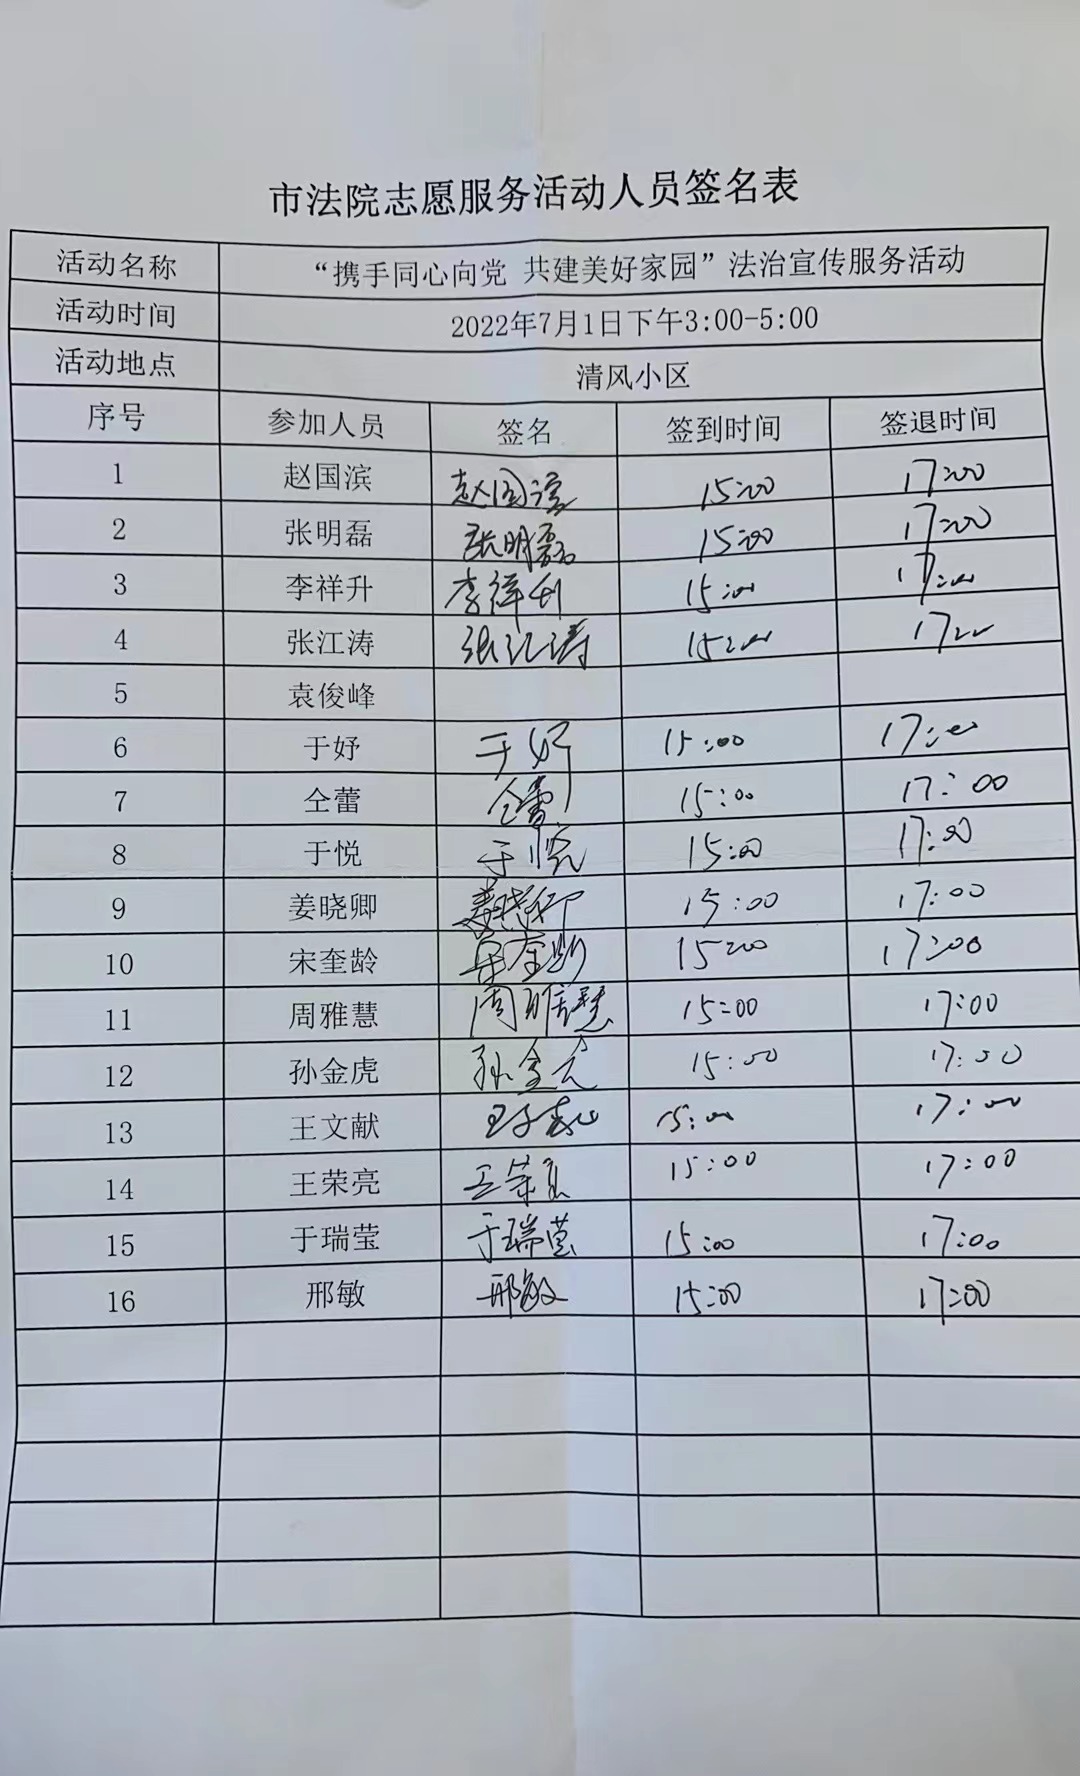 市法院志愿服务活动人员签名表
活动名称 “携手同心向党 共建美好家园”法治宣传服务活动
活动时间 2022年7月1日下午3:00-5:00
活动地点 清风小区
序号 参加人员 签名 签到时间 签退时间
1 赵国滨 赵国滨 15:00 17:00
2 张明磊 张明磊 15:00 17:00
3 李祥升 李祥升 15:00 17:00
4 张江涛 张江涛 15:00 17:00
5 袁俊峰
6 于妤 于妤 15:00 17:00
7 仝蕾 仝蕾 15:00 17:00
8 于悦 于悦 15:00 17:00
9 姜晓卿 姜晓卿 15:00 17:00
10 宋奎龄 宋奎龄 15:00 17:00
11 周雅慧 周雅慧 15:00 17:00
12 孙金虎 孙金虎 15:00 17:00
13 王文献 15:00 17:00
14 王荣亮 王荣亮 15:00 17:00
15 于瑞莹 于瑞莹 15:00 17:00
16 邢敏 邢敏 15:00 17:00